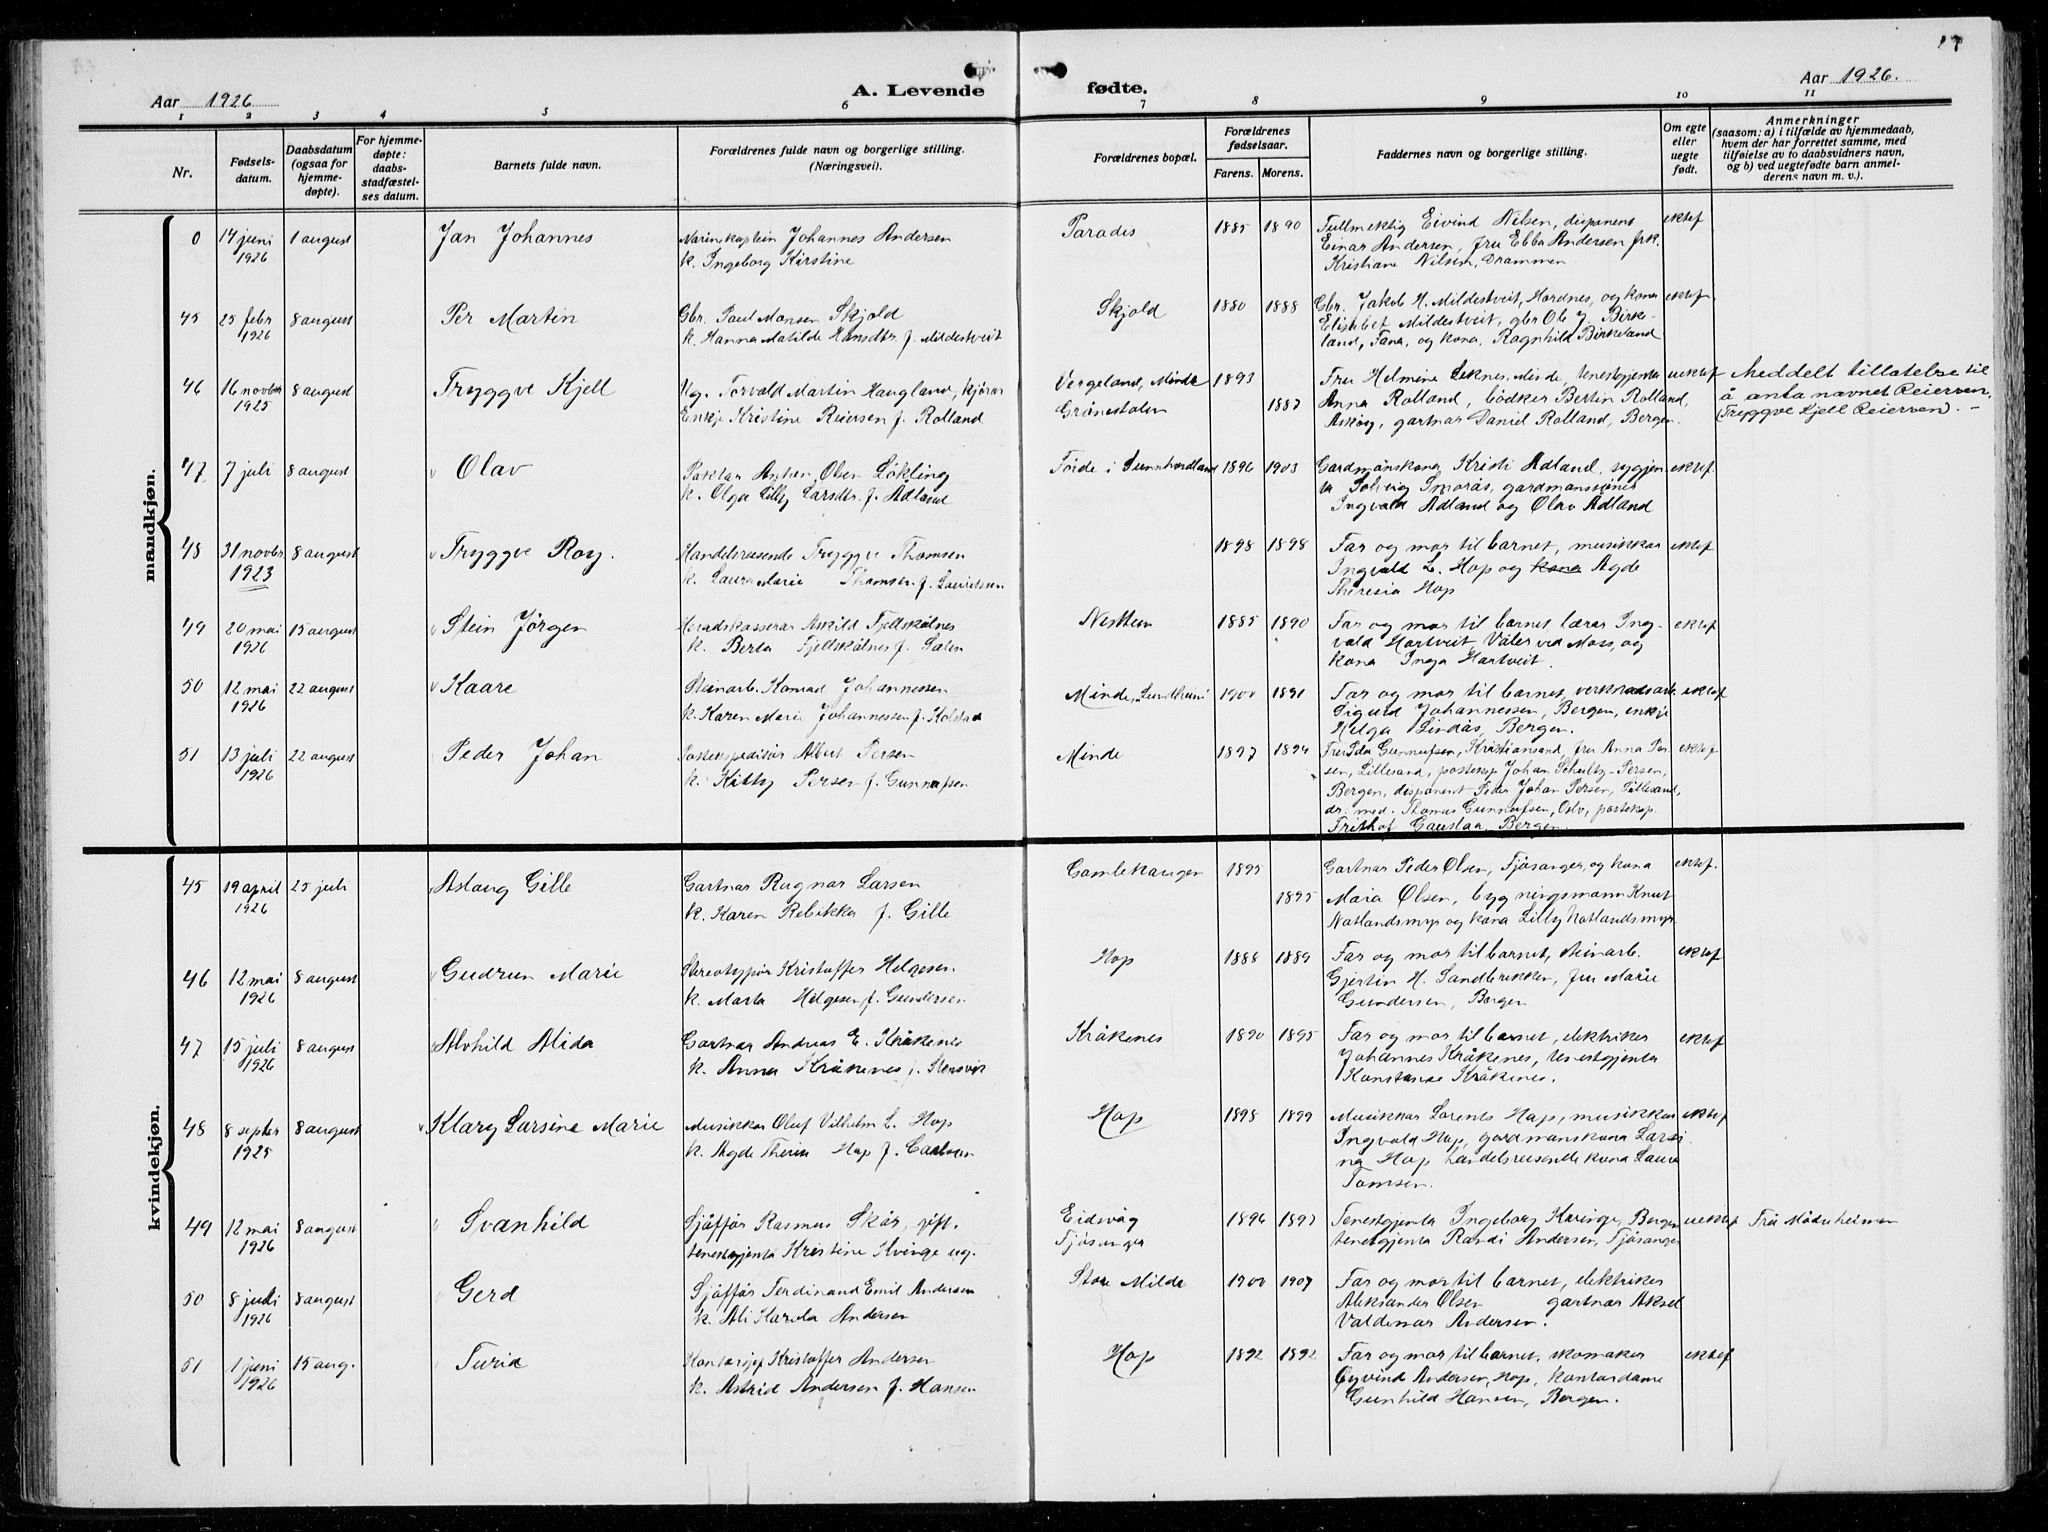 17
Aar 1926
A. Levende
fødte.
Aar 1926.
1 2 3 4 5 6 7 8 9 10 11
Nr.
Fødsels-
datum.
Daabsdatum
(ogsaa for
hjemme-
døpte).
For hjemme-
døpte:
daabs-
stadfæstel-
ses datum.
Barnets fulde navn.
Forældrenes fulde navn og borgerlige stilling.
(Næringsvei).
Forældrenes bopæl.
Forældrenes
fødselsaar.
Farens. Morens.
Faddernes navn og borgerlige stilling.
Om egte
eller
uegte
født.
Anmerkninger
(saasom: a) i tilfælde av hjemmedaab,
hvem der har forrettet samme, med
tilføielse av to daabsvidners navn,
og b) ved uegtefødte barn anmel-
derens navn m. v.).
mandkjøn.
0 14 juni 1 august Jan Johannes Marinekaptein Johannes Andersen Paradis 1885 1890 Fullmektig Eivind Nilsen, disponent ektef
1926 k. Ingeborg Kirstine Einar Andersen, fru Ebba Andersen frk.
Kristiane Nilsen, Drammen
45 25 febr 8 august Per Martin Gbr. Paul Monsen Skjold Skjold 1880 1888 Gbr. Jakob H. Mildestveit, Hordnes, og kona ektef
1926 k. Hanna Matilde Hansdtr. f. Mildestveit Elisabet Mildestveit, gbr Ole J. Birke-
land, Fana, og kona Ragnhild Birkeland
46 16 novbr 8 august Tryggve Kjell Ug. Torvald Martin Haugland, kjörar Vergeland, Minde 1893 Fru Helmine Leknes, Minde, tenestgjenta uektef Meddelt tillatelse til
1925 Enkje Kristine Reiersen f. Rolland Grönestolen 1887 Anna Rolland, bödker Bertin Rolland, å anta navnet Reiersen,
Askøy, gartnar Daniel Rolland, Bergen (Tryggve Kjell Reiersen). -
47 7 juli 8 august Olav Olsen Løkling Förde i Sunnhordland 1896 1903 Gardmanskona Kristi Adland, sygjen- ektef
k. Olga Lilly Larsdtr. f. Adland ta Solveig Smorås, gardmanssönes
Ingvald Adland og Olav Adland
48 31 novbr 8 august Tryggve Roy. Handelsreisende Tryggve Thomsen 1898 1898 Far og mor til barnet, musikkar ektef
1923 k. Laura Marie Thomsen f. Lauritssen Ingvald L. Hop og kona Agde
Theresia Hop
49 20 mai 15 august Stein Jørgen Heradskasserar Askild Fjellskålnes Nesttun 1885 1890 Far og mor til barnet lærar Ing- ektef
1926 k. Berta Fjellskålnes f. vald Hartveit, Våler ved Moss, og
kona Inga Hartveit.
50 12 mai 22 august Kaare Steinarb. Konrad Johannessen Minde, 1900 1891 Far og mor til barnet, verkstadsarb. ektef
1926 k. Karen Marie Johannessen f. Kolstad Sigurd Johannessen, Bergen, enkje
Helga Lindås, Bergen.
51 13 juli 22 august Peder Johan Postekspeditör Albert Persen Minde 1897 1894 Gunnufsen, Kristiansand, fru Anna Per- ektef
1926 k. Kitty Persen f. Gunnufsen sen, Lillesand, posteksp Johan Schultz-Persen,
Bergen, disponent Peder Johan Persen, Lillesand,
dr. med. Thomas Gunnufsen, Oslo, posteksp.
Frithof Gaustaa, Bergen.
kvindekjøn.
45 19 april 25 juli Aslaug Gille Gartnar Ragnar Larsen Gamlehaugen 1895 Gartnar Peder Olsen, Fjösanger, og kona ektef.
1926 k. Karen Rebikka f. Gille 1895 Maria Olsen, bygningsmann Knut
Natlandsmyr og kona Lilly Natlandsmyr
46 12 mai 8 august Gudrun Marie Stereotypör Kristoffer Helgesen Hop 1888 1889 Far og mor til barnet, steinarb. ektef
1926 k. Marta Helgesen f. Gundersen Gjertin H. Sandbrekken, fru Marie
Gundersen, Bergen
47 15 juli 8 august Alvhild Alida Gartnar Andreas E. Kråkenes Kråkenes 1890 1895 Far og mor til barnet, elektriker ektef
1926 k. Anna Kråkenes f. Stensvik Johannes Kråkenes, tenestgjenta
Konstanse Kråkenes.
48 8 septbr 8 august Klary Larsine Marie Musikkar Oluf Vilhelm L. Hop Hop 1898 1899 Musikkar Lorents Hop, musikkar ektef
1925 k. Agde Hop f. Carlsen Ingvald Hop, gardmanskona Larsi-
na Hop handelsreisende kona Laura
Tomsen.
49 12 mai 8 august Svanhild Sjåffør Rasmus Skår, gift. Eidsvåg 1896 1897 Tenestgjenta Ingeborg Kvinge, Bergen uektef Frå Mödreheimen
1926 tenestgjenta Kristine Kvinge ug. Fjösanger tenestgjenta Randi Andersen, Fjösanger
50 8 juli 8 august Gerd Sjåffør Ferdinand Emil Andersen Store Milde 1900 1907 Far og mor til barnet, elektriker ektef
1926 k. Ali Karola Andersen Aleksander Olsen gartnar Aksel
Valdemar Andersen.
51 1 juni 15 aug. Turid Kontorsjef Kristoffer Andersen Hop 1892 1892 Far og mor til barnet, skomaker ektef
1926 k. Astrid Andersen f. Hansen Øyvind Andersen, Hop, kontordame
Gunhild Hansen, Bergen.